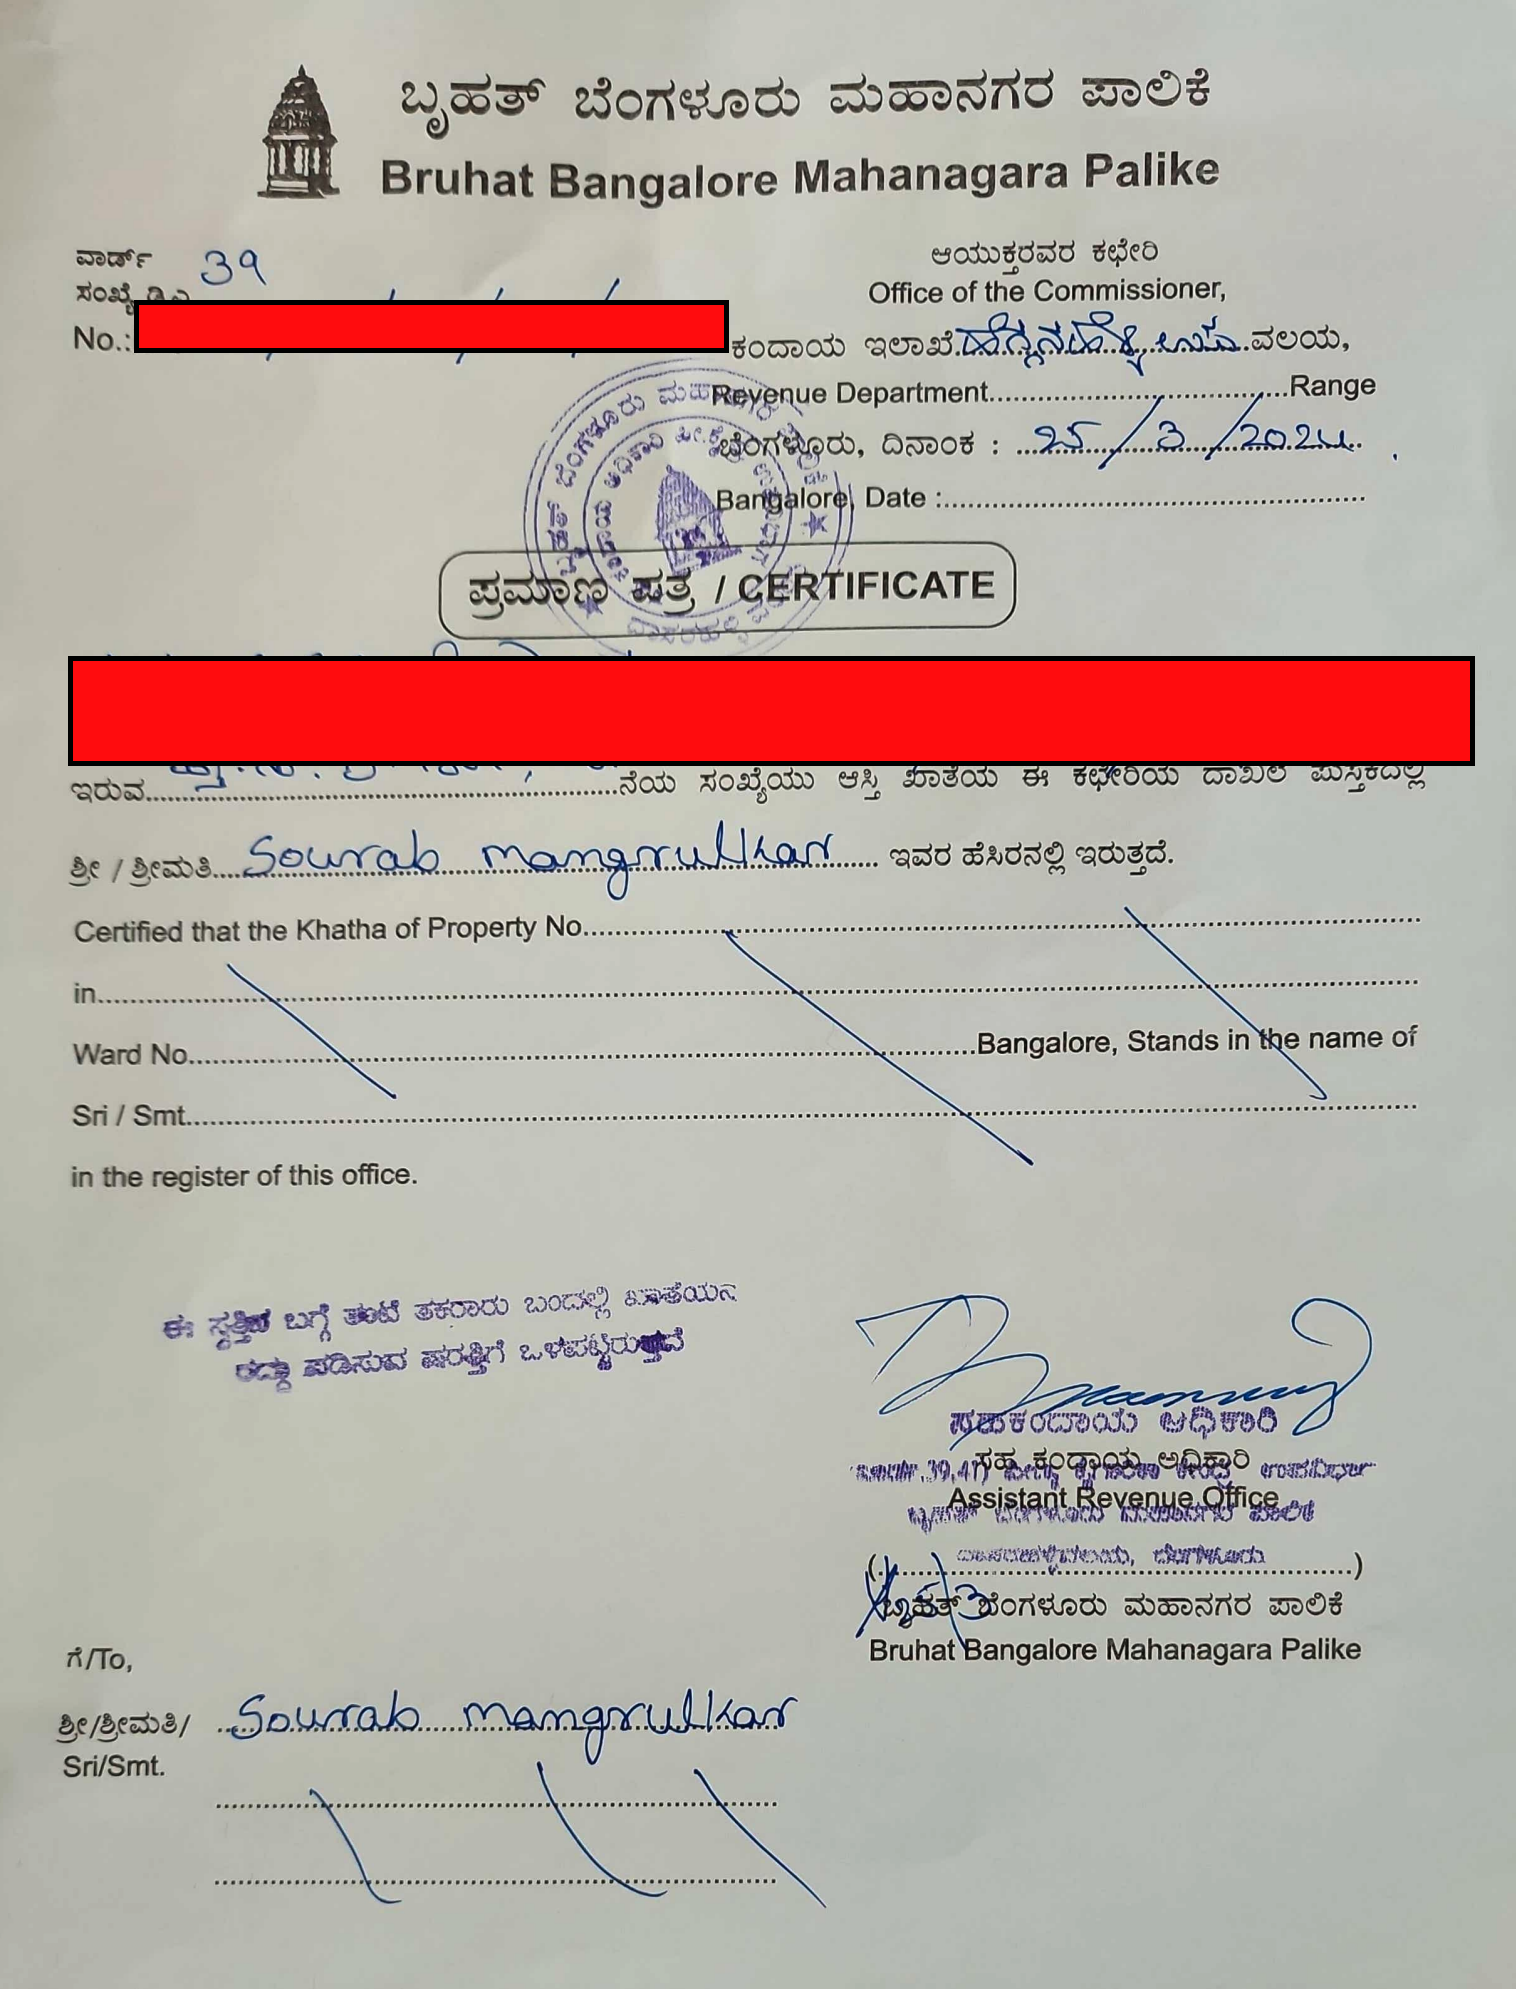 ಬೃಹತ್ ಬೆಂಗಳೂರು ಮಹಾನಗರ ಪಾಲಿಕೆ
Bruhat Bangalore Mahanagara Palike
ವಾರ್ಡ್ 39
ಸಂಖ್ಯೆ
No.:
ಆಯುಕ್ತರವರ ಕಛೇರಿ
Office of the Commissioner,
ಕಂದಾಯ ಇಲಾಖೆ ವಲಯ,
Revenue Department Range
ಬೆಂಗಳೂರು, ದಿನಾಂಕ : 25/3/2024
Bangalore, Date :
ಪ್ರಮಾಣ ಪತ್ರ / CERTIFICATE
ಇರುವ ನೆಯ ಸಂಖ್ಯೆಯು ಆಸ್ತಿ ಖಾತೆಯ ಈ ಕಛೇರಿಯ ದಾಖಲೆ ಪುಸ್ತಕದಲ್ಲಿ
ಶ್ರೀ / ಶ್ರೀಮತಿ Sourab Mangrulkar ಇವರ ಹೆಸರಿನಲ್ಲಿ ಇರುತ್ತದೆ.
Certified that the Khatha of Property No.
in
Ward No. Bangalore, Stands in the name of
Sri / Smt.
in the register of this office.
ಈ ಸ್ವತ್ತಿನ ಬಗ್ಗೆ ತಂಟೆ ತಕರಾರು ಬಂದಲ್ಲಿ ಖಾತೆಯನ
ರದ್ದು ಪಡಿಸುವ ಷರತ್ತಿಗೆ ಒಳಪಟ್ಟಿರುತ್ತದೆ
ಸಹಕಂದಾಯ ಅಧಿಕಾರಿ
ಸಹ ಕಂದಾಯ ಅಧಿಕಾರಿ
Assistant Revenue Office
ಬೃಹತ್ ಬೆಂಗಳೂರು ಮಹಾನಗರ ಪಾಲಿಕೆ
Bruhat Bangalore Mahanagara Palike
ಗೆ/To,
ಶ್ರೀ/ಶ್ರೀಮತಿ/ Sourab Mangrulkar
Sri/Smt.